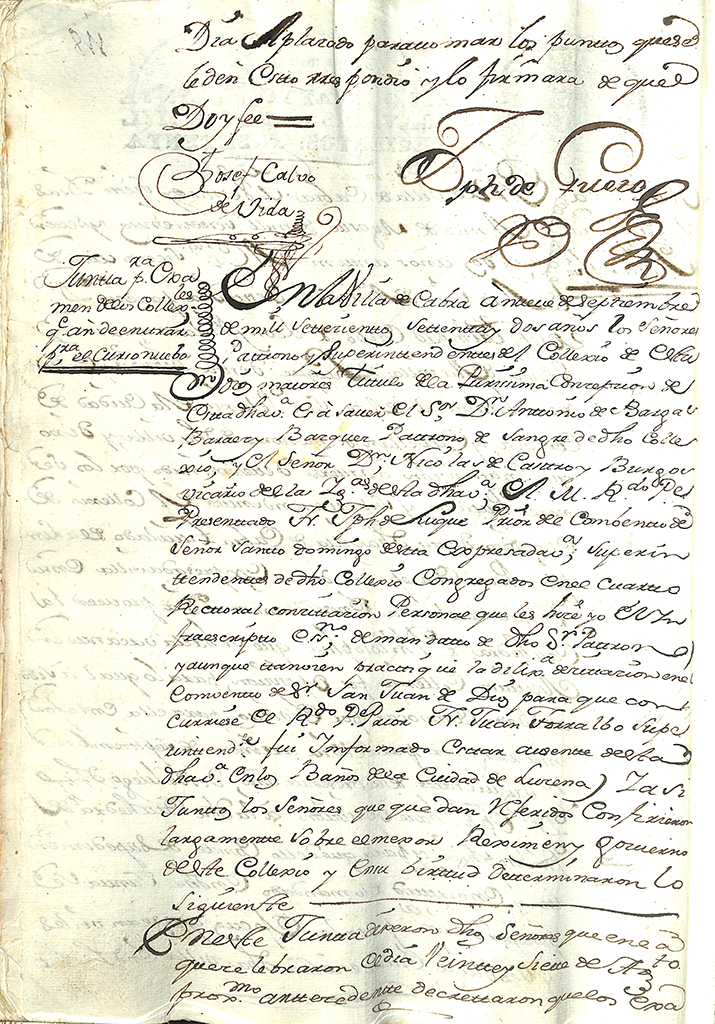 Dia Aplazado para tomar los puntos que se
le den Esto respondió y lo firmara de que
Doy fee
Josef Calvo
de Vida
Jph de
Junta p.ra Exa
men de los Collex.les
q.e an de entrar
p.ra el Curso nuebo
En la Villa de Cabra a nueve de septiembre
de mill settecientos settenta y dos años los Señores
Pattrono y Superinttendenttes del Collexio de Estu
dios maiores titulo de la Purissima Conzepcion de
Estta dha v.a Es a saver el S.or D.n Anttonio de Bargas
Baraez y Barquer Pattrono de Sangre de dho Colle
xio, y el Señor D.n Nicolas de Castro y Burgos
Vicario de las Ig.as de Esta dha v.a El M. R.do P.e
Presenttado Fr. Jph de Luque Prior del Combento de
Señor Santto domingo de esta Expresada v.a; Superin
ttendenttes de dho Collexio Congregados en el Cuartto
Recttoral con cittacion Personal que les hize yo el Yn
fraescripto Ess.no de mandatto de dho S.or Pattron
y aunque ttanvien practtiqué la dilix.a de cittacion en el
Comvento de S.r San Juan de Dios para que con
curriese el R.do P.e Prior Fr. Juan Torralbo Supe
rinttend.te fui Informado Esttar ausente de Esta
dha v.a En los Baños de la Ciudad de Lucena) I asi
Junttos los Señores que quedan Referidos Confirieron
largamente sobre el mexor Reximen y govierno
de Este Collexio y En su birtud Determinaron lo
siguiente
En este Junta dixeron dhos Señores que en la
que zelebraron el dia Veintte y siete de Ag.to
prox.mo antteredentte decretaron que los Exa